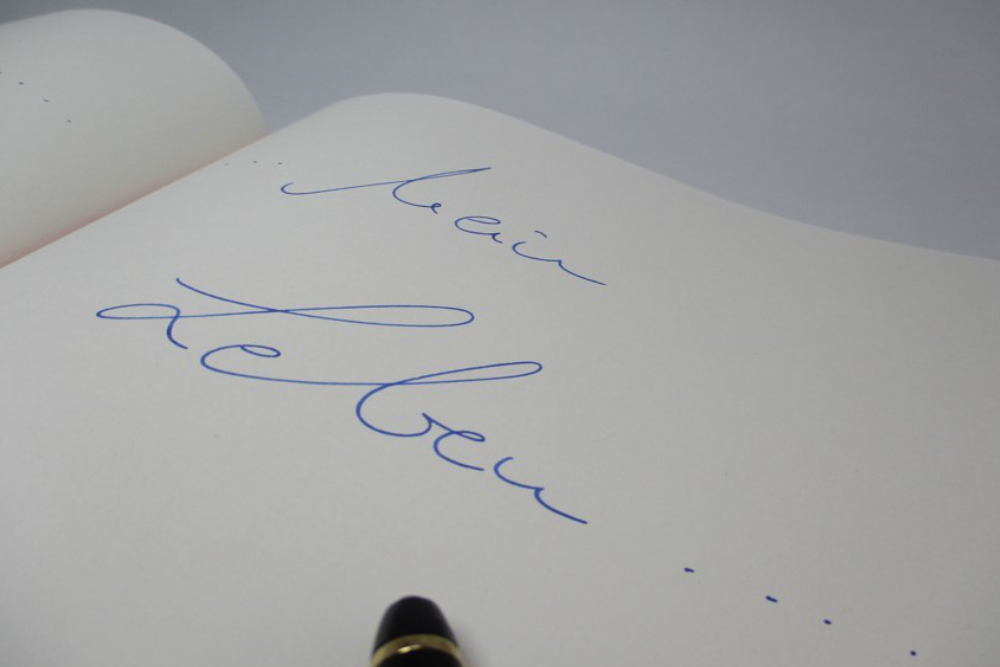 ... Mein
Leben ....